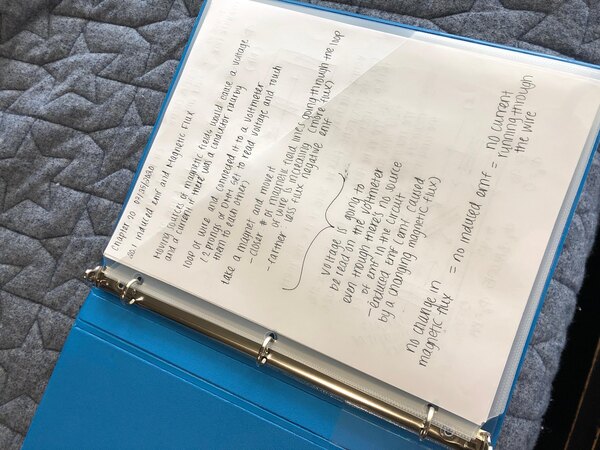 Chapter 20
20.1 Induced Emf and Magnetic Flux
Moving sources of magnetic fields would cause a voltage
and a current if there was a conductor nearby
loop of wire and connected it to a voltmeter
(2 prongs of DMM set to read voltage and touch
them to each other)
take a magnet and move it
- closer # of magnetic field lines going through the loop
of wire is increasing (more flux)
- farther less flux negative emf
voltage is going to
be read on the voltmeter
even though there's no source
of emf in the circuit
- induced emf (emf caused
by a changing magnetic flux)
no change in
magnetic flux
= no induced emf =
no current
running through
the wire